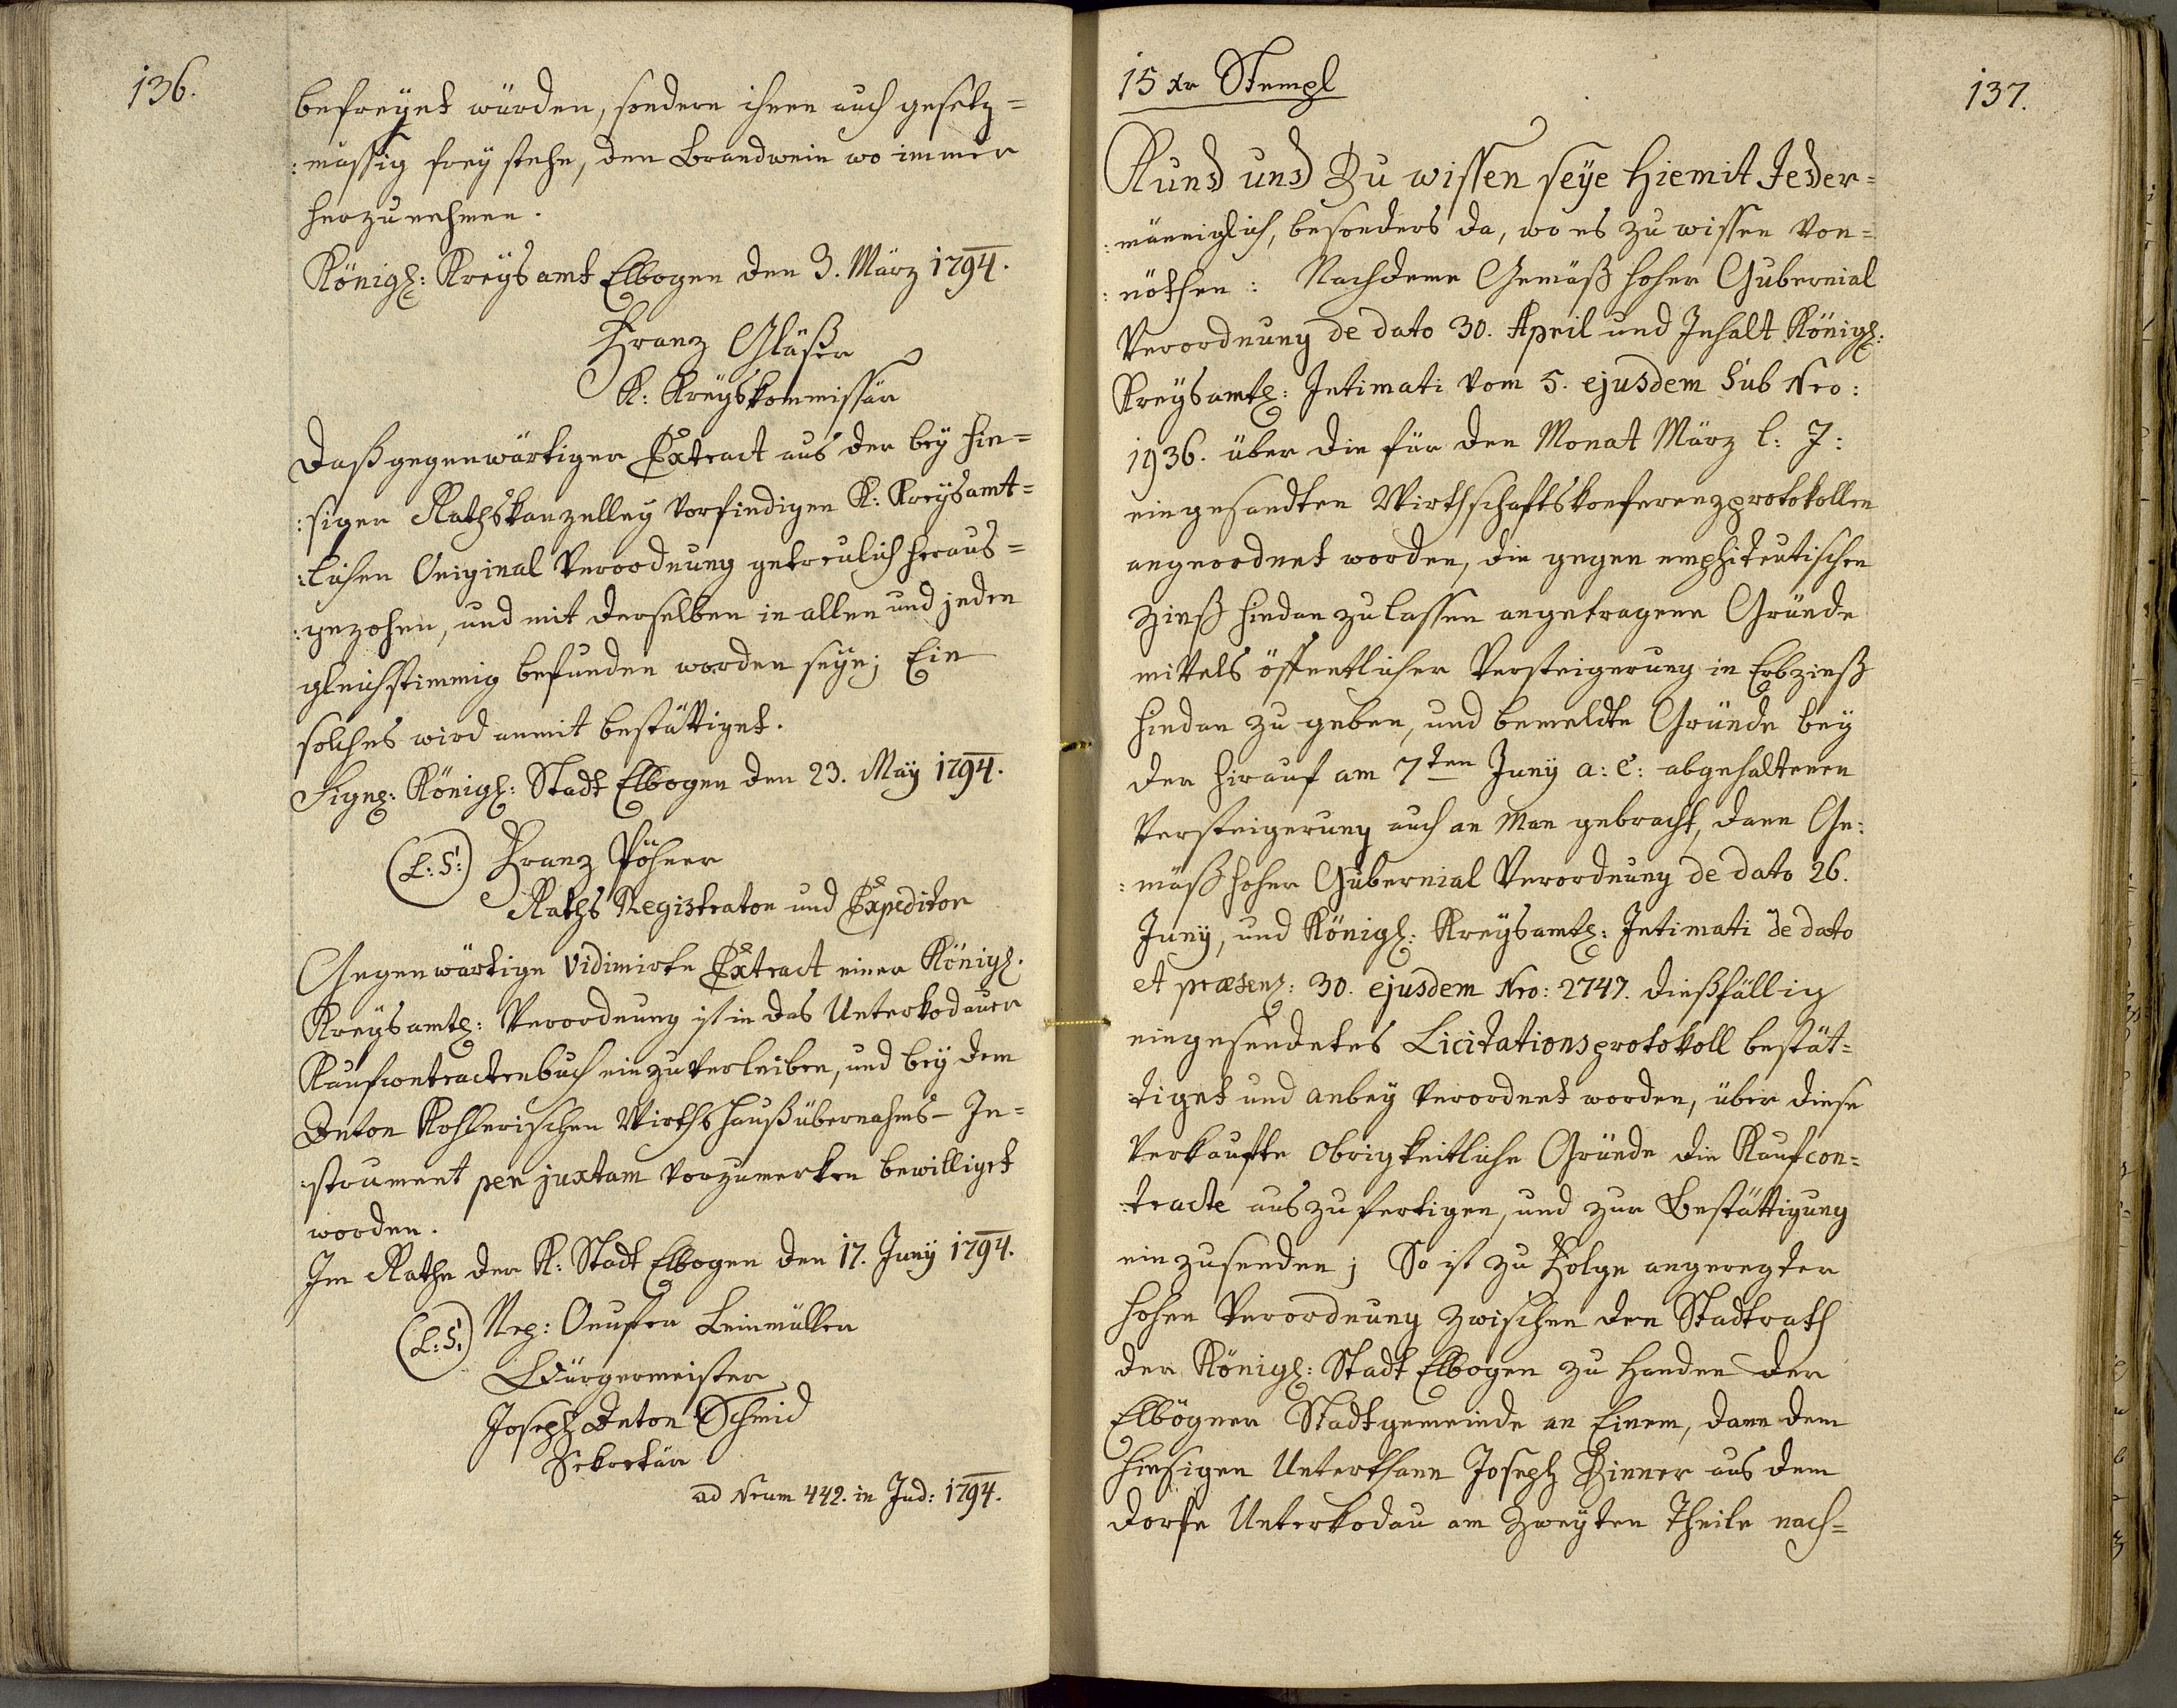 136.
befreÿet würden, sondern ihnen auch gesetz=
:mässig freÿ stehe, den Brandwein wo immer
herzunehmen.
Königl: Kreÿsamt Elbogen den 3. März 1794.
Franz Gläßer
K: Kreÿskommissär
Daß gegenwärtiger Extract aus der beÿ hie=
:sigen Rathskanzelleÿ vorfindigen K: Kreÿsamt=
:lichen Original Verordnung getreulich heraus=
:gezohen, und mit derselben in allen und jeden
gleichstimmig befunden worden seÿe; Ein
solches wird anmit bestättiget.
Signl: Königl: Stadt Elbogen den 23. Maÿ 1794.
(L:S:) Franz Pöhner
Raths Registrator und Expeditor
Gegenwärtige vidimirte Extract einer Königl.
Kreÿsamtl: Verordnung ist in das Unterkodauer
Kaufcontractenbuch einzuverleiben, und beÿ dem
Anton Kohlerischen Wirthshaußübernahms- In=
:strument per juxtam vorzumerken bewilliget
worden.
Im Rathe der K: Stadt Elbogen den 17. Junÿ 1794.
(L:S:) Nep: Onufer Leinmüller
Bürgermeister
Joseph Anton Schmid
Sekretär
ad Nrum 442. in Jud: 1794.
15 xr Stempl
137.
Kund und Zu wissen seÿe Hiemit Jeder=
:männiglich, besonders da, wo es zu wissen von=
:nöthen: Nachdeme Gemäß hoher Gubernial
Verordnung de dato 30. April und Inhalt Königl:
Kreÿsamtl: Intimati vom 5. ejusdem Sub Nro:
1936. über die für den Monat März l: J:
eingesandten Wirthschaftskonferenzprotokollen
angeordnet worden, die gegen emphiteutischen
Zinß hindan zu lassen angetragene Gründe
mittels öffentlicher Versteigerung in Erbzinß
hindan zu geben, und bemeldte Gründe beÿ
der hierauf am 7ten Junÿ a: c: abgehaltenen
Versteigerung auch an Man gebracht, dann Ge:
:mäß hoher Gubernial Verordnung de dato 26.
Junÿ, und Königl: Kreÿsamtl: Intimati de dato
et præsenl: 30. ejusdem Nro: 2747. dießfällig
eingesendetes Licitationsprotokoll bestät=
:tiget und anbeÿ verordnet worden, über diese
verkaufte obrigkeitliche Gründe die Kaufcon=
:tracte auszufertigen, und zur Bestättigung
einzusenden; So ist zu Folge angeregter
hohen Verordnung zwischen den Stadtrath
der Königl: Stadt Elbogen zu Handen der
Elbögner Stadtgemeinde an Einem, dann dem
hiesigen Unterthann Joseph Zinner aus dem
Dorfe Unterkodau am Zweÿten Theile nach=